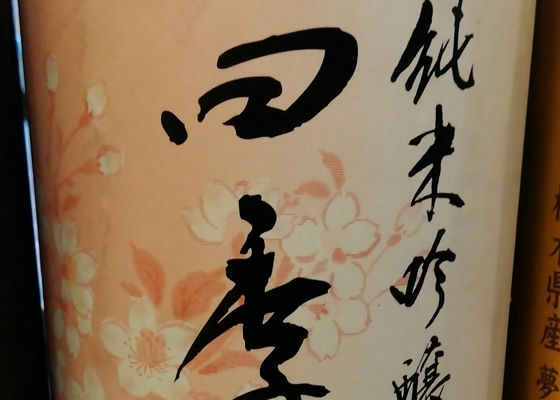 純米吟醸
四季
木県産 夢